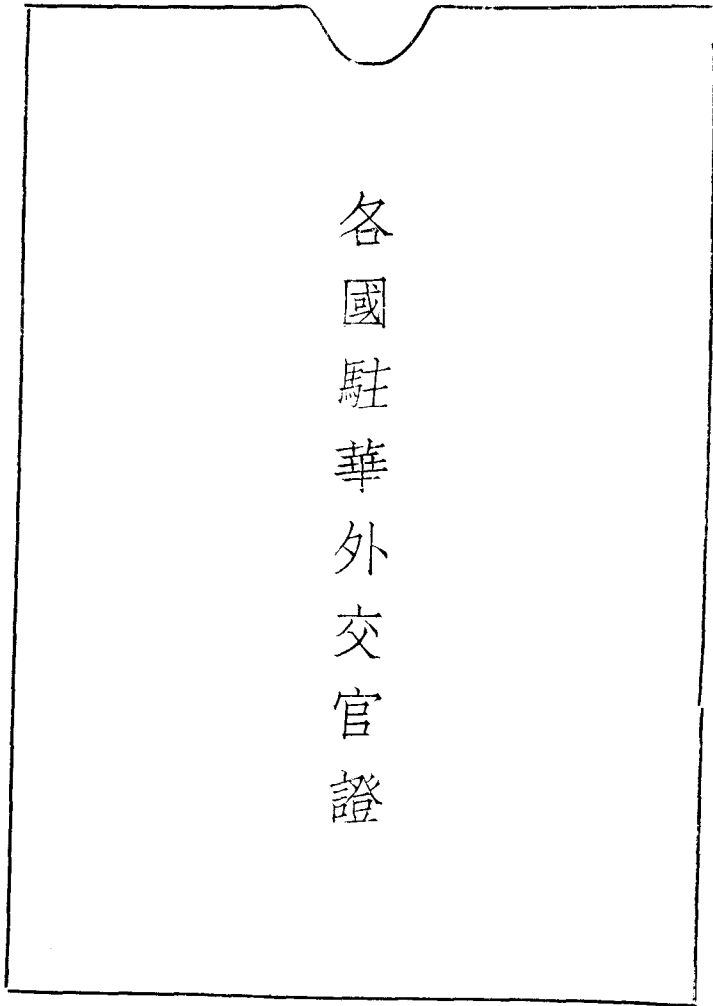 各國駐華外交官證